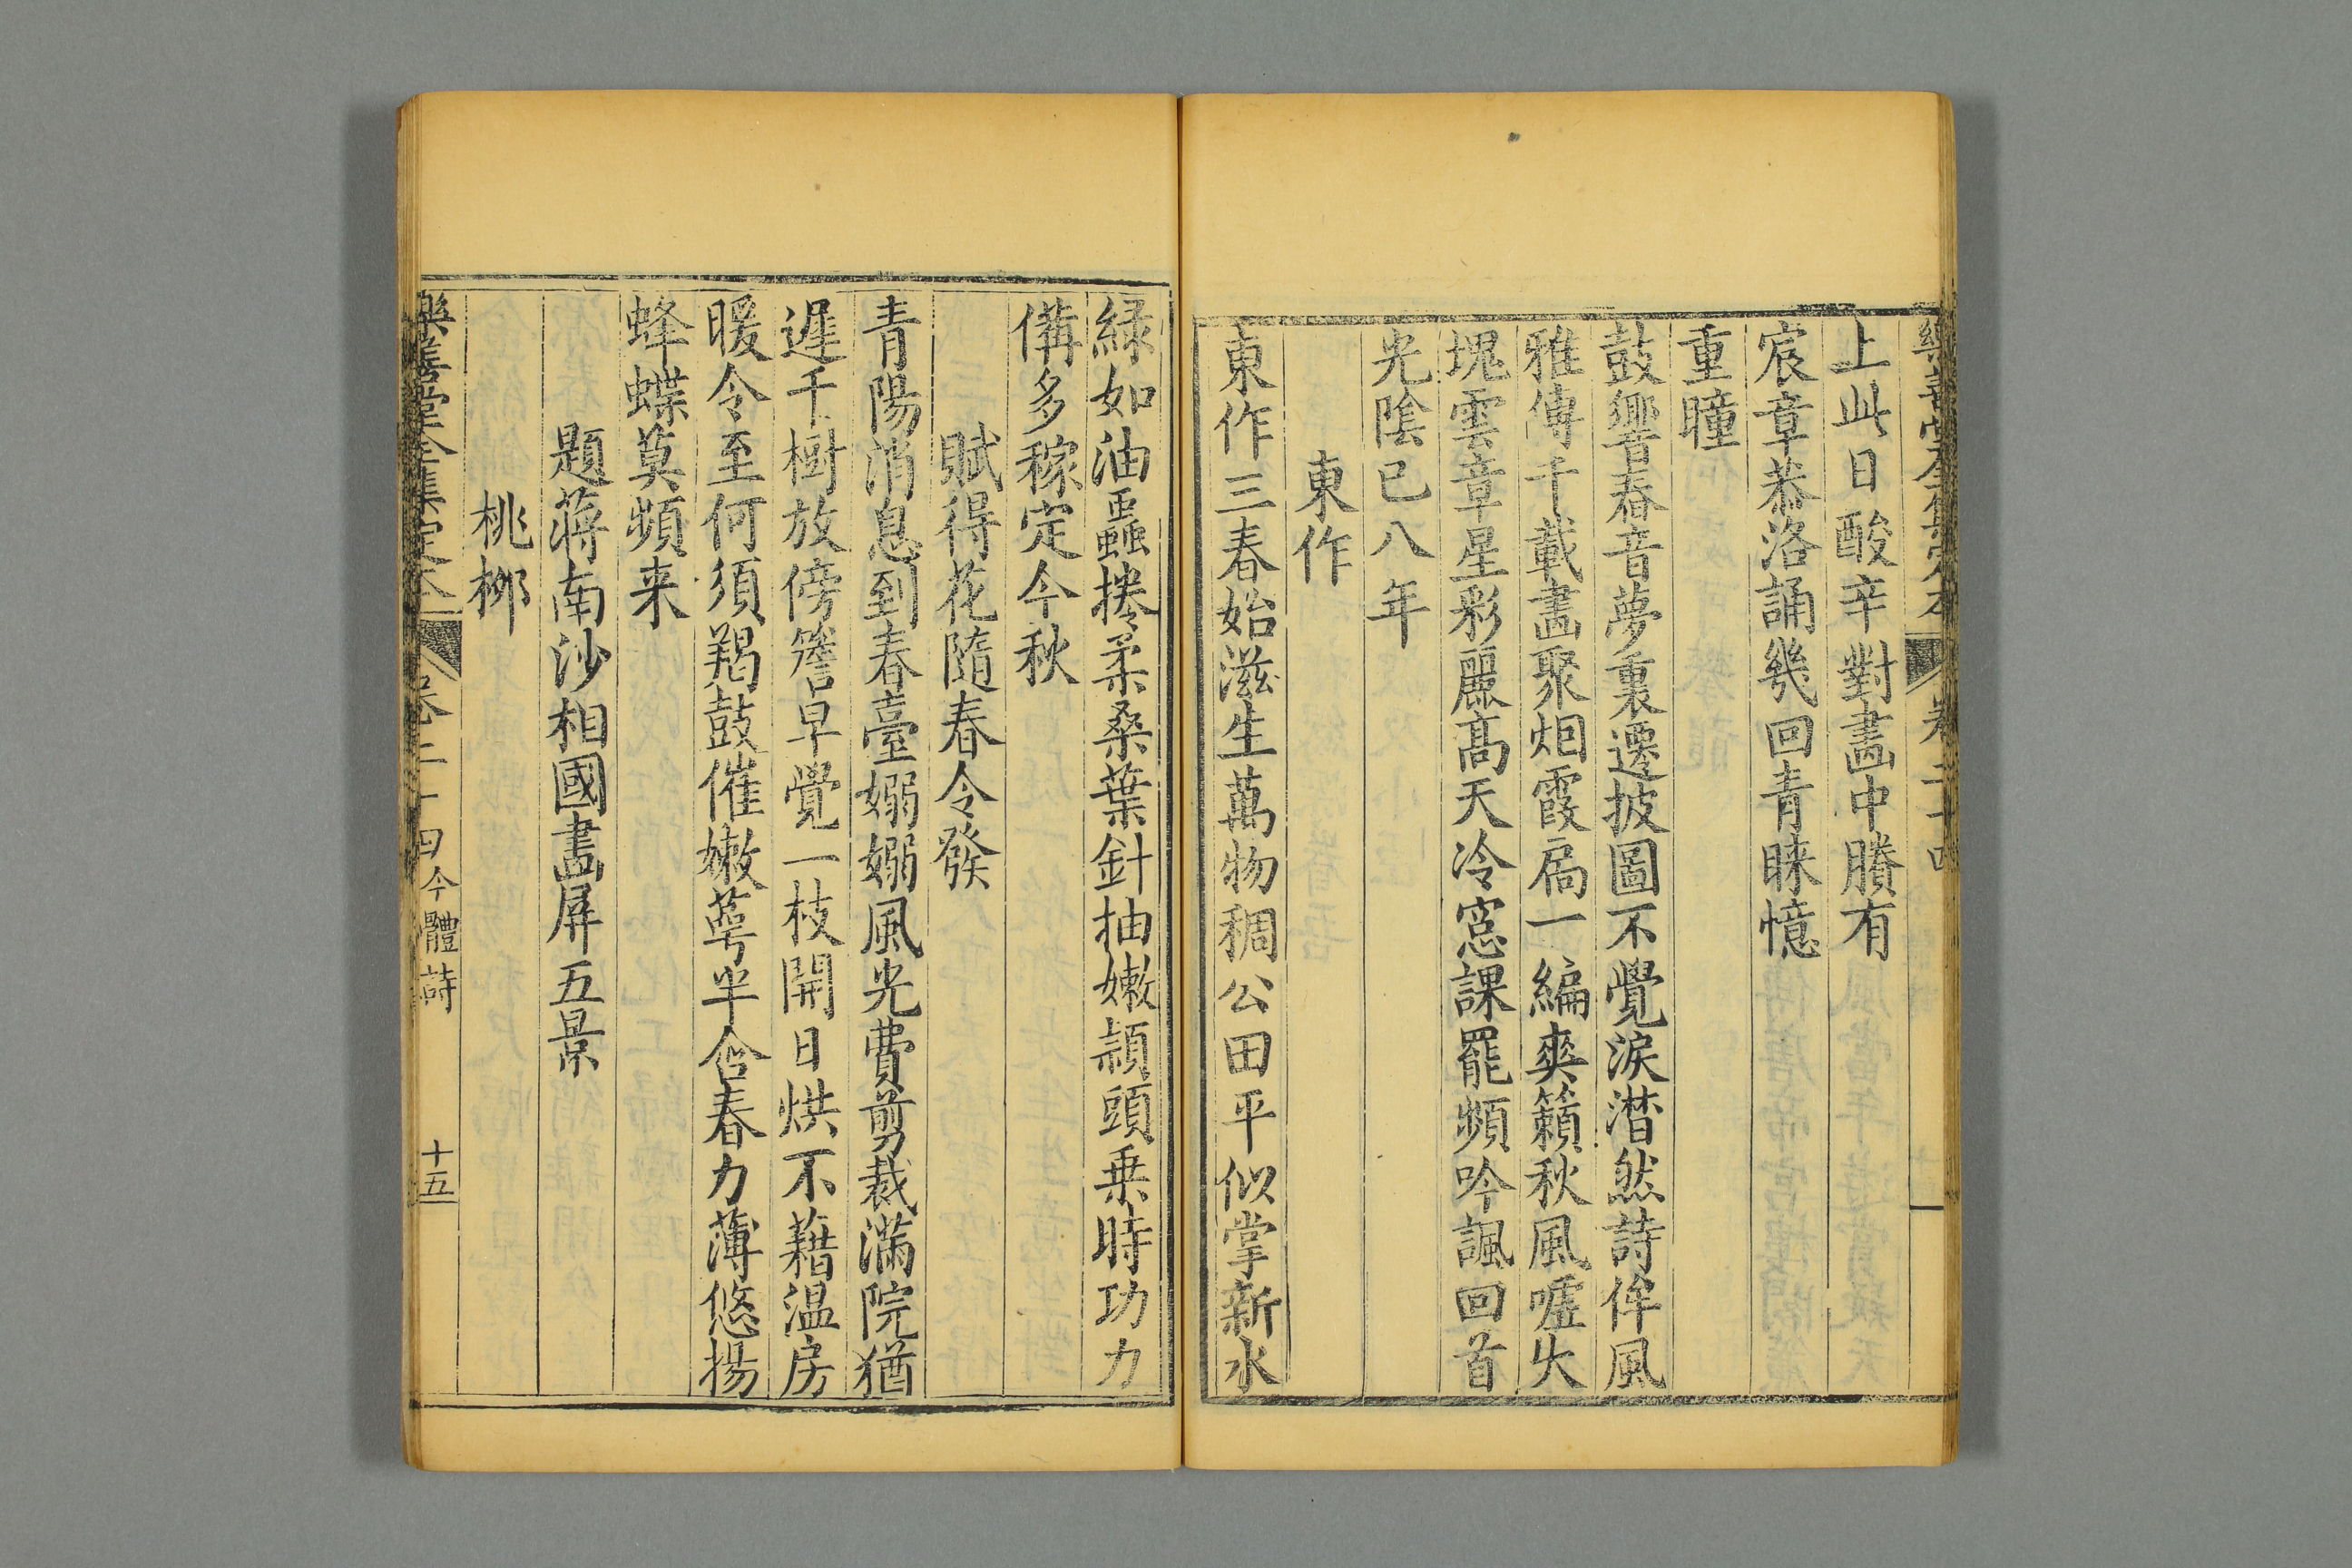 樂善堂全集定本 卷二十四
上此日酸辛對畫中賸有
宸章恭洛誦幾回青睞憶
重瞳
鼓響春音夢裏遷披圖不覺淚潛然詩侔風
雅傳千載畫聚烟霞扃一編爽籟秋風嘘失
塊雲章星彩麗髙天冷窻課罷頻吟諷回首
光陰已八年
東作
東作三春始滋生萬物稠公田平似掌新水
緑如油蟲捲柔桑葉針抽嫩頴頭乗時功力
備多稼定今秋
賦得花隨春令發
青陽消息到春臺嫋嫋風光費剪裁滿院猶
遲千樹放傍簷早覺一枝開日烘不藉温房
暖令至何須羯鼓催嫩萼半含春力薄悠揚
蜂蝶莫頻来
題蔣南沙相國畫屏五景
桃栁
樂善堂全集定本 卷二十四 今體詩 十五